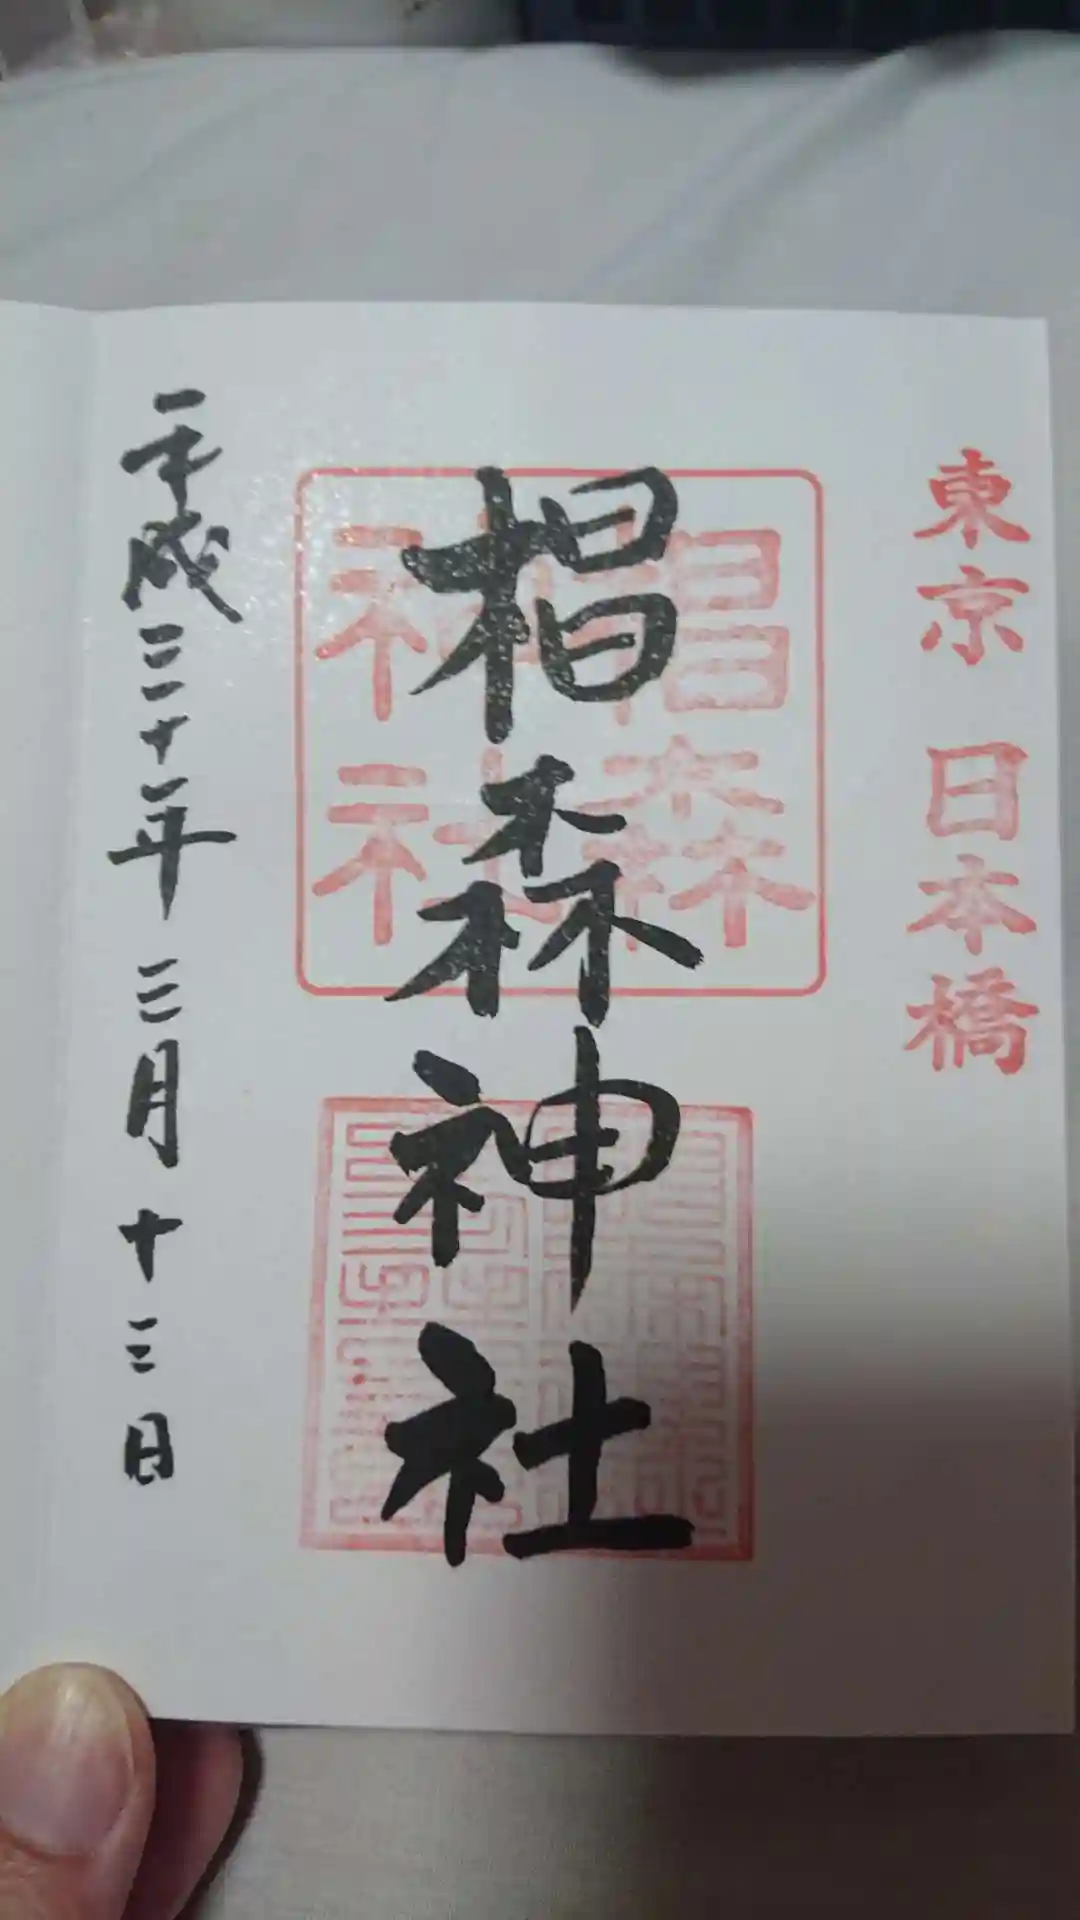 東京 日本橋
椙森神社
椙森
神社
平成三十年 三月 十三日